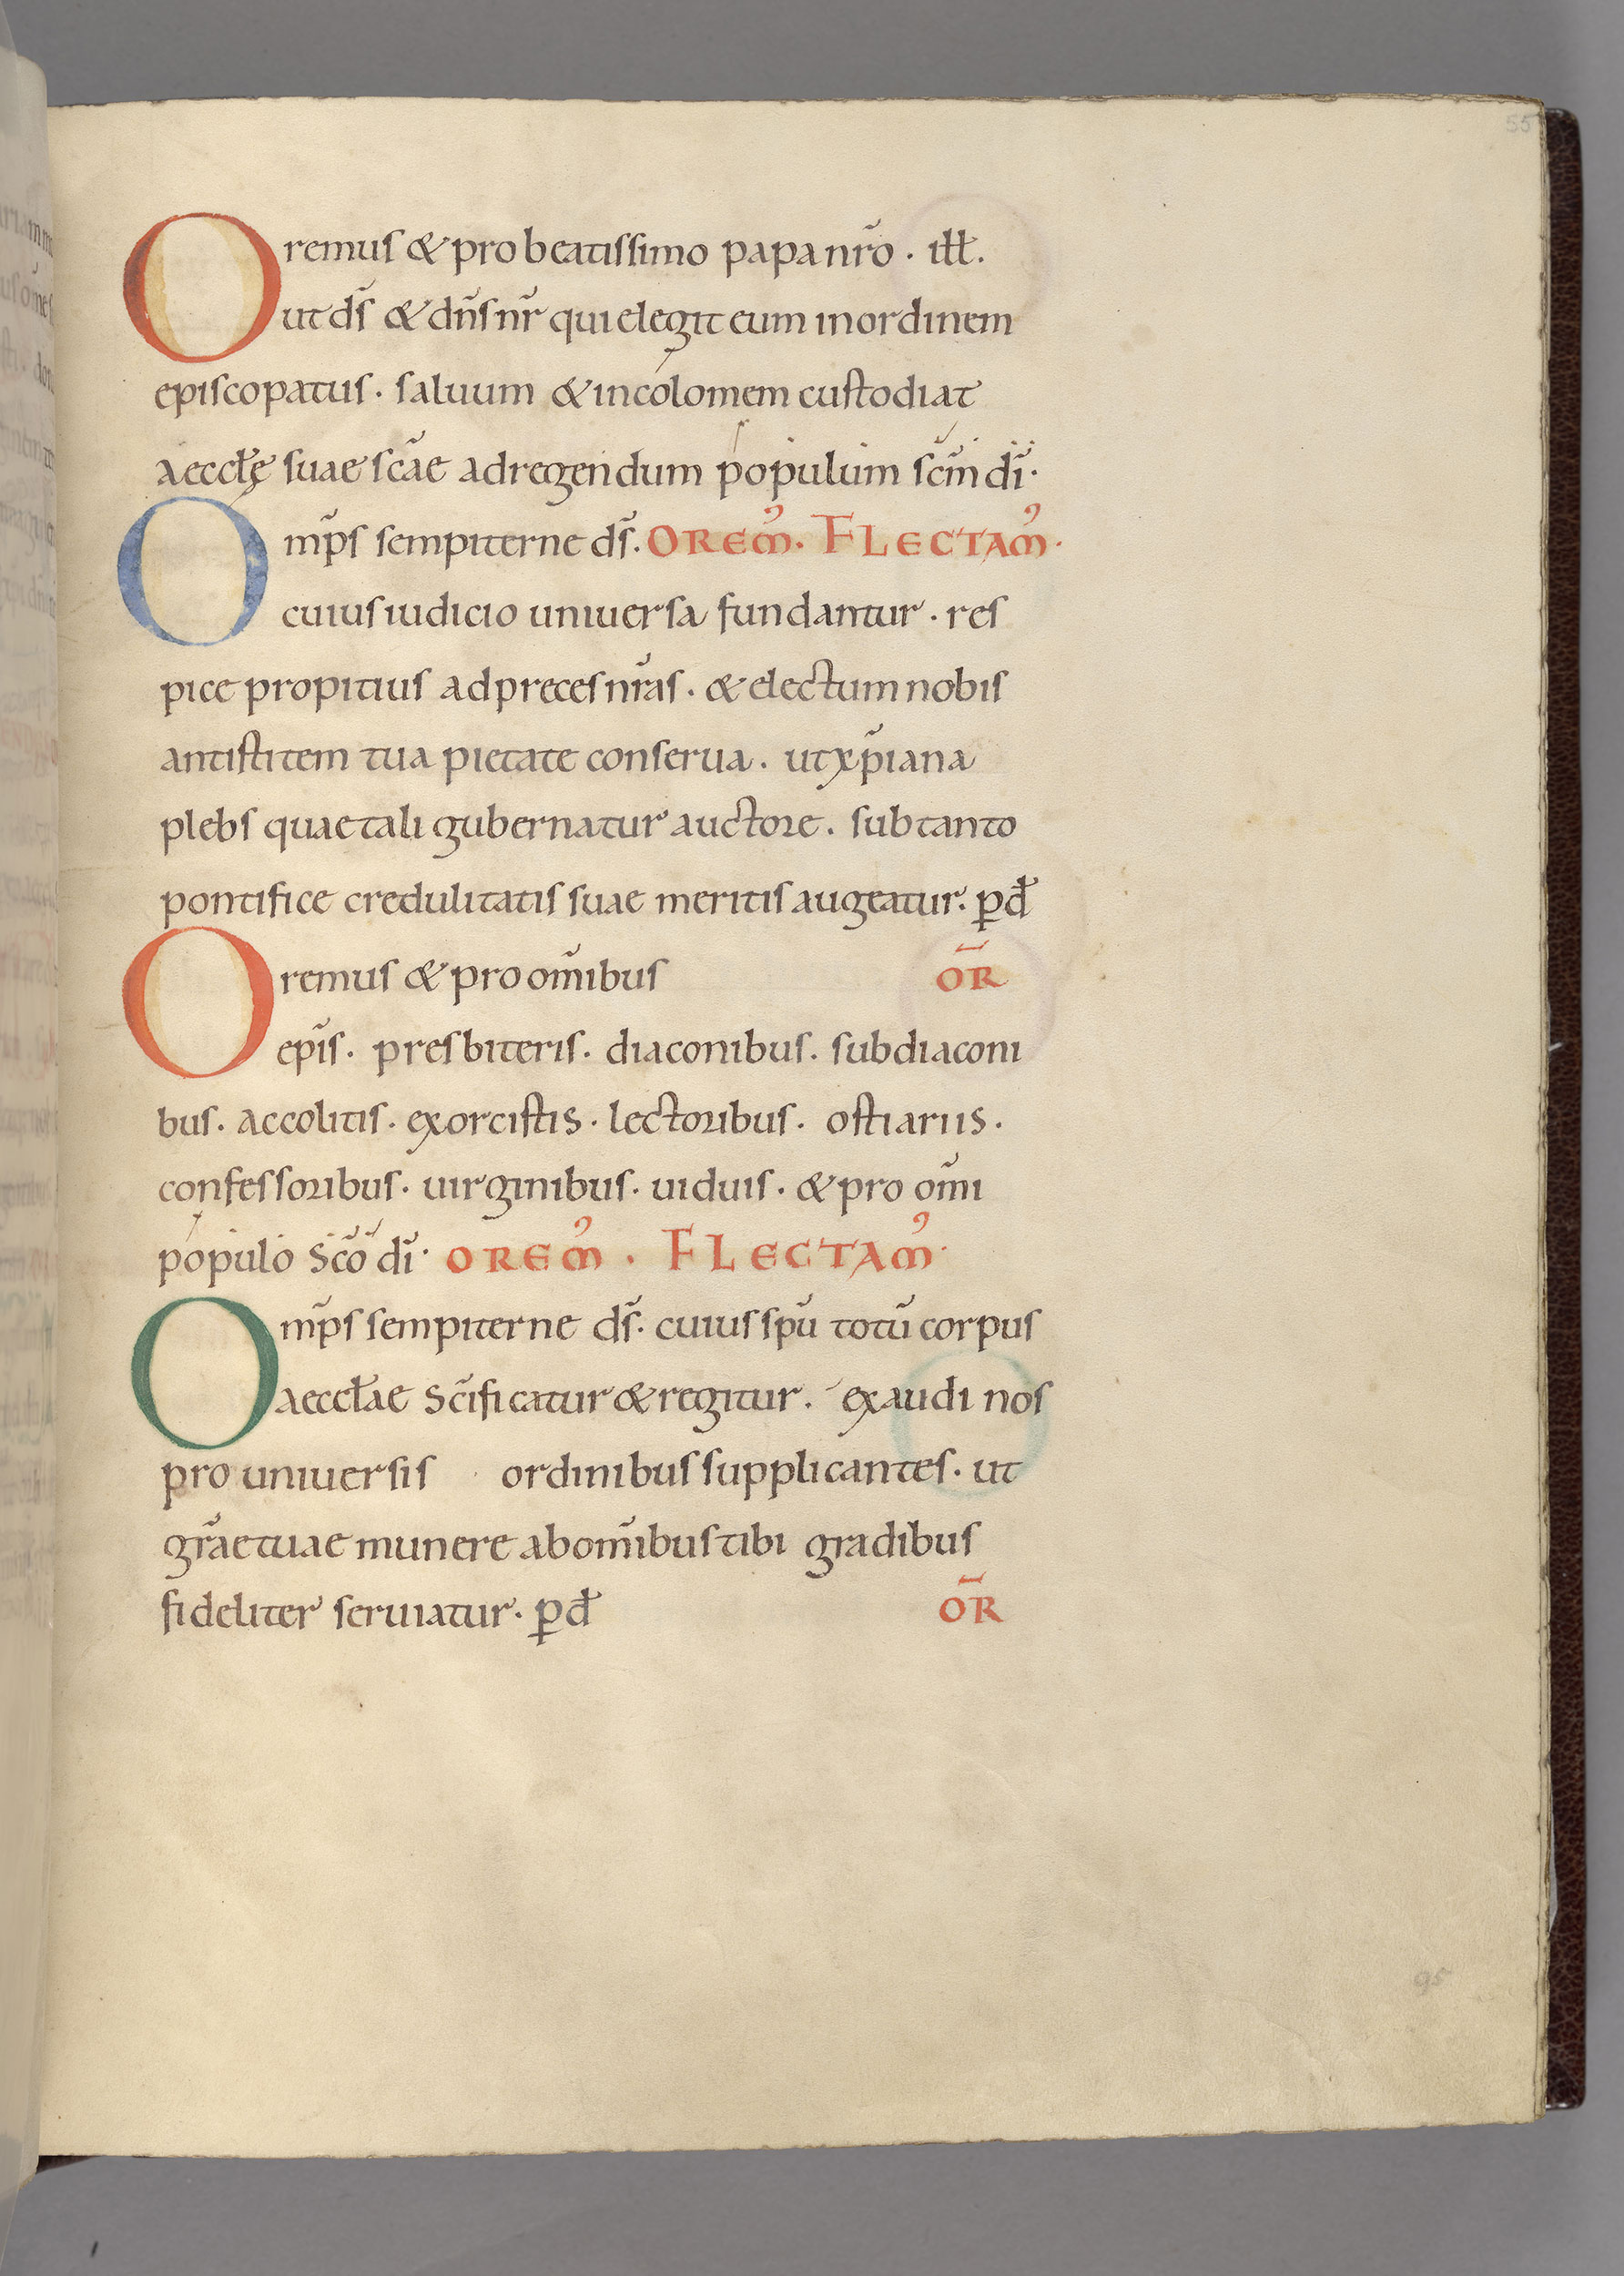 55
Oremus & pro beatissimo papa nr̄o · ill̄.
ut ds̄ & dn̄s nr̄ qui elegit eum in ordinem
episcopatus · saluum & incolomem custodiat
aeccłę suae sc̄ae ad regendum populum sc̄m dī·
Omp̄s sempiterne ds̄. OREM᾿. FLECTAM᾿.
cuius iudicio uniuersa fundantur · res
pice propitius ad preces nr̄as · & electum nobis
antistitem tua pietate conserua . ut xp̄iana
plebs quae tali gubernatur auctore . sub tanto
pontifice credulitatis suae meritis augeatur. ꝑ đ
Oremus & pro om̄ibus OR̄
ep̄is . presbiteris . diaconibus . subdiaconi
bus . accolitis . exorcistis . lectoribus . ostiariis .
confessoribus · uirginibus · uiduis · & pro om̄i
populo Sc̄o dī· OREM᾿ . FLECTAM᾿
Omp̄s sempiterne ds̄. cuius spū totū corpus
aeccłae Sc̄ificatur & regitur . exaudi nos
pro uniuersis ordinibus supplicantes . ut
gr̄ae tuae munere ab om̄ibus tibi gradibus
fideliter seruiatur . ꝑ đ OR̄
95